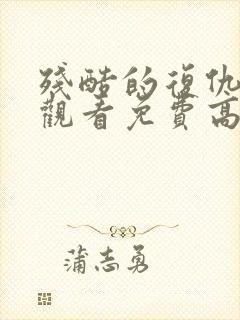 殘酷的復仇
觀看免費高
蒲志勇